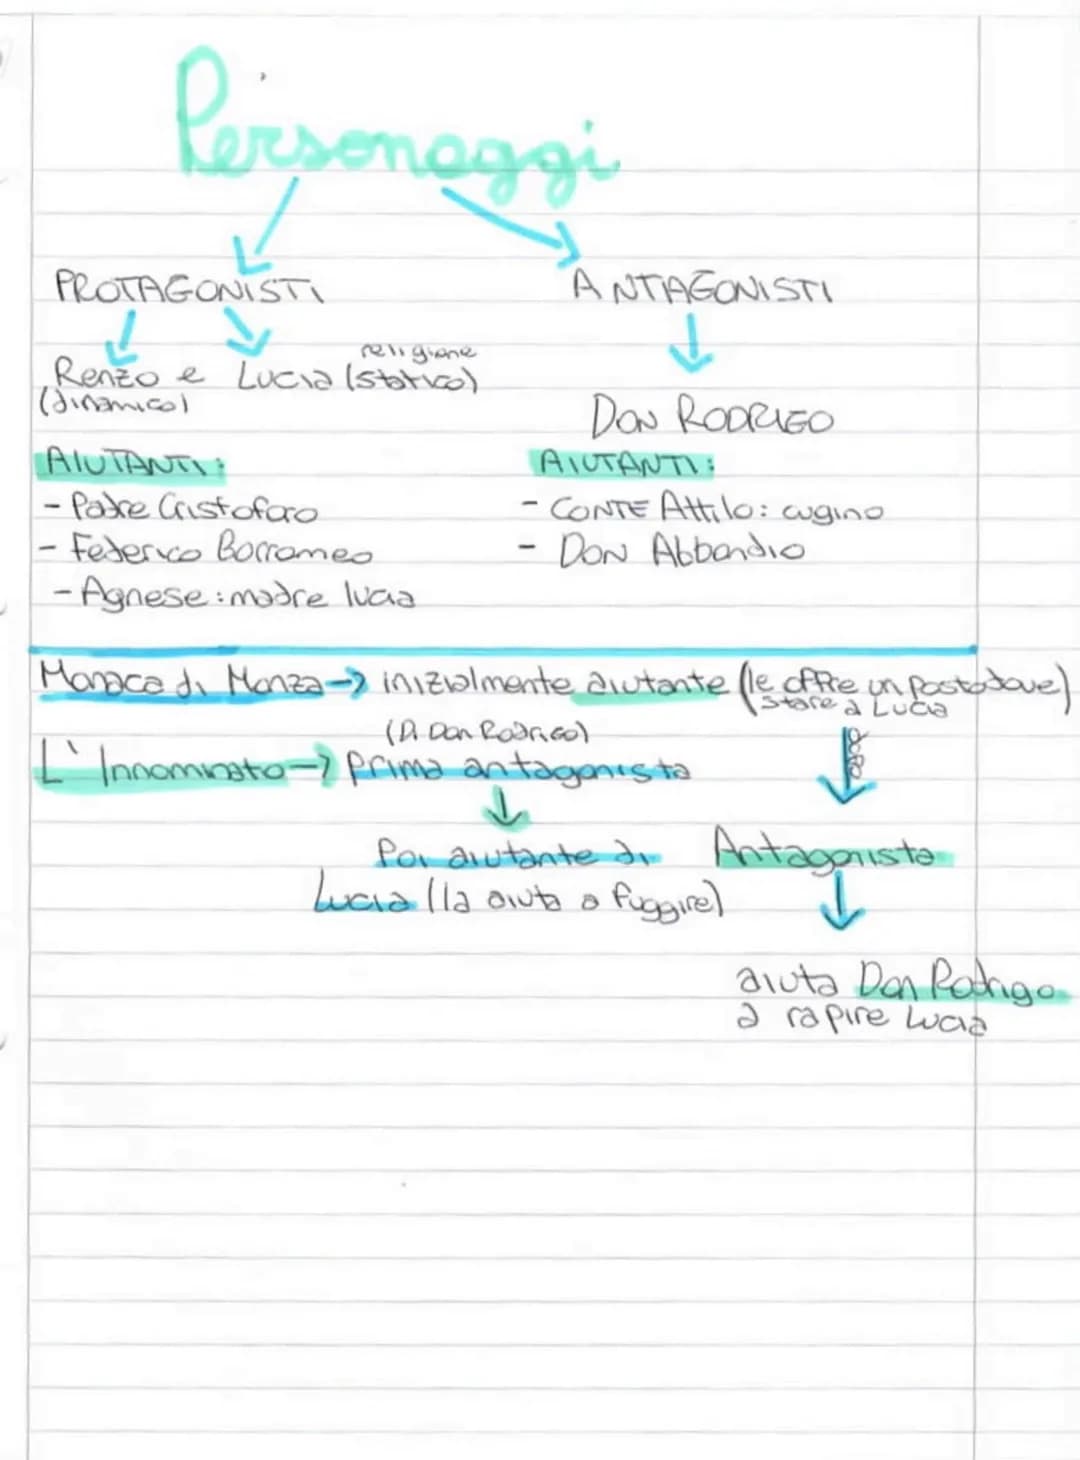 Personaggi
PROTAGONISTI
ANTAGONISTI
religione
Renzo e Lucia (statico)
(dinamico)
DON RODRIGO
AIUTANTI:
- Padre Cristoforo
- Federico Borromeo
- Agnese: madre lucia
AIUTANTI:
- CONTE Attilo: cugino
- DON Abbondio
Monaca di Monza → inizialmente aiutante (le offre un posto dove)
stare a Lucia
(Di Don Rodrigo)
L'Innominato → prima antagonista
dopo
Poi aiutante di
Lucia (la aiuta a fuggire)
Antagonista
aiuta Don Rodrigo
a rapire Lucia